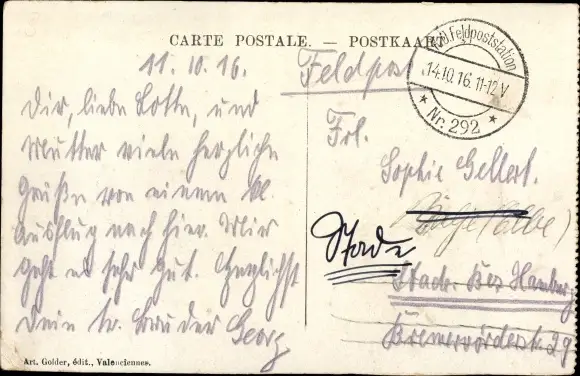 CARTE POSTALE. — POSTKAART
11. 10. 16.
Feldpost
Dir, liebe Lotte, und
Mutter viele herzliche
Grüße von einem kl.
Ausflug nach hier. Mir
geht es sehr gut. Herzlichst
Dein tr. Bruder Georg
Feldpoststation
14.10.16. 11-12 V
* Nr. 292 *
Frl.
Sophie Gellert.
Stade
Stade Bez Hamburg
Bremervörderst. 29
Art. Golder, édit., Valenciennes.